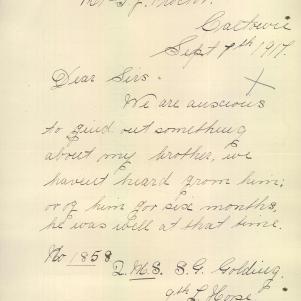 Mr. S. J. Proctor.
Caltowie
Sept 7th 1917.
Dear Sirs -
We are auscious
to find out something
about my brother, we
havent heard from him;
or of him for six months,
he was well at that time.
No 1858
Q.M.S. S.G. Golding.
9th L. Horse.